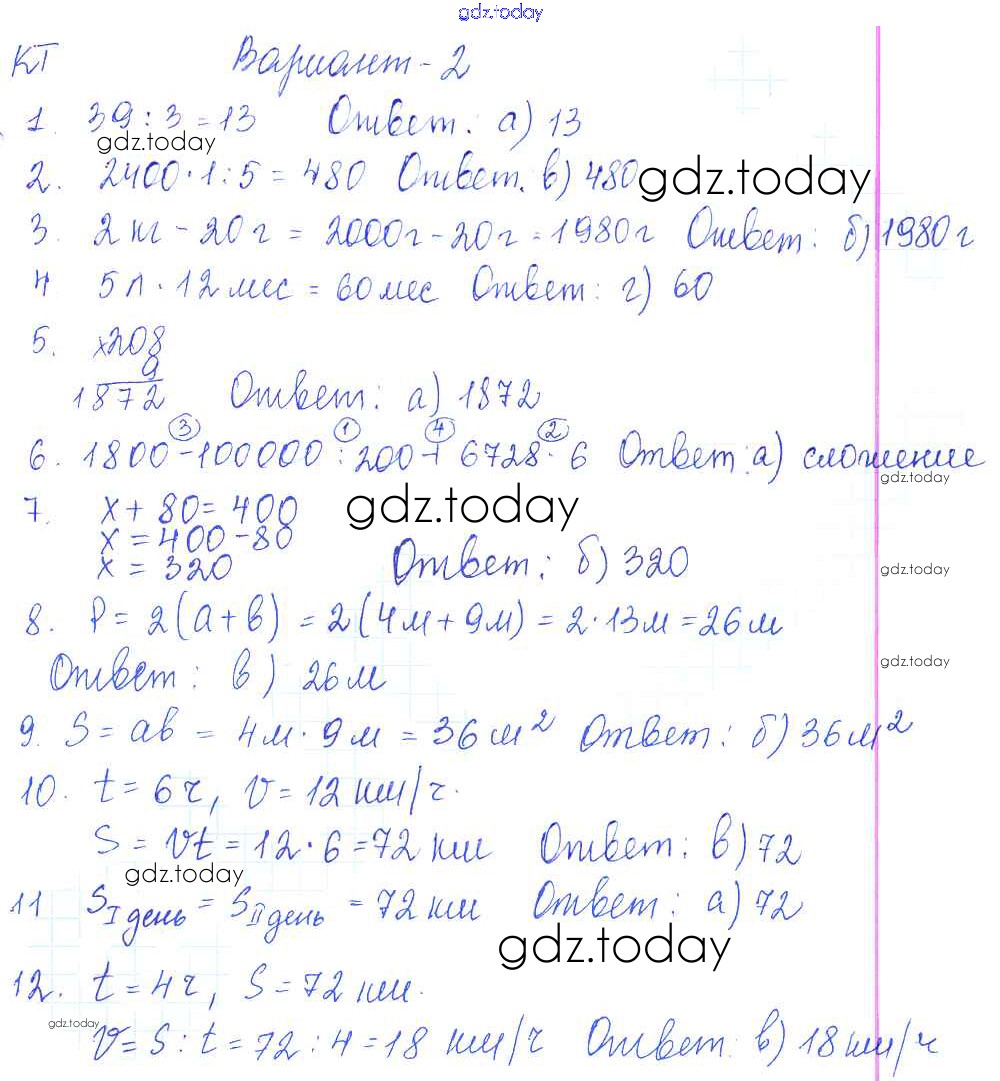 gdz.today
КТ Вариант-2
1. 39 : 3 = 13 Ответ: а) 13
gdz.today
2. 2400 · 1 : 5 = 480 Ответ. в) 480
gdz.today
3. 2 кг - 20 г = 2000г - 20 г = 1980 г Ответ: б) 1980 г
4 5 л · 12 мес = 60 мес Ответ: г) 60
5. ×208
9
1872 Ответ: а) 1872
3 1 4 2
6. 1800 - 100000 : 200 + 6728 · 6 Ответ: а) сложение
gdz.today
7. x + 80 = 400
gdz.today
x = 400 - 80
x = 320 Ответ: б) 320
gdz.today
8. P = 2(a + b) = 2(4м + 9м) = 2 · 13м = 26 м
gdz.today
Ответ: в) 26 м
9. S = ab = 4 м · 9 м = 36 м² Ответ: б) 36 м²
10. t = 6 ч, v = 12 км/ч.
S = vt = 12 · 6 = 72 км Ответ: в) 72
gdz.today
11 S I день = S II день = 72 км Ответ: а) 72
gdz.today
12. t = 4 ч, S = 72 км.
gdz.today
v = S : t = 72 : 4 = 18 км/ч Ответ: в) 18 км/ч